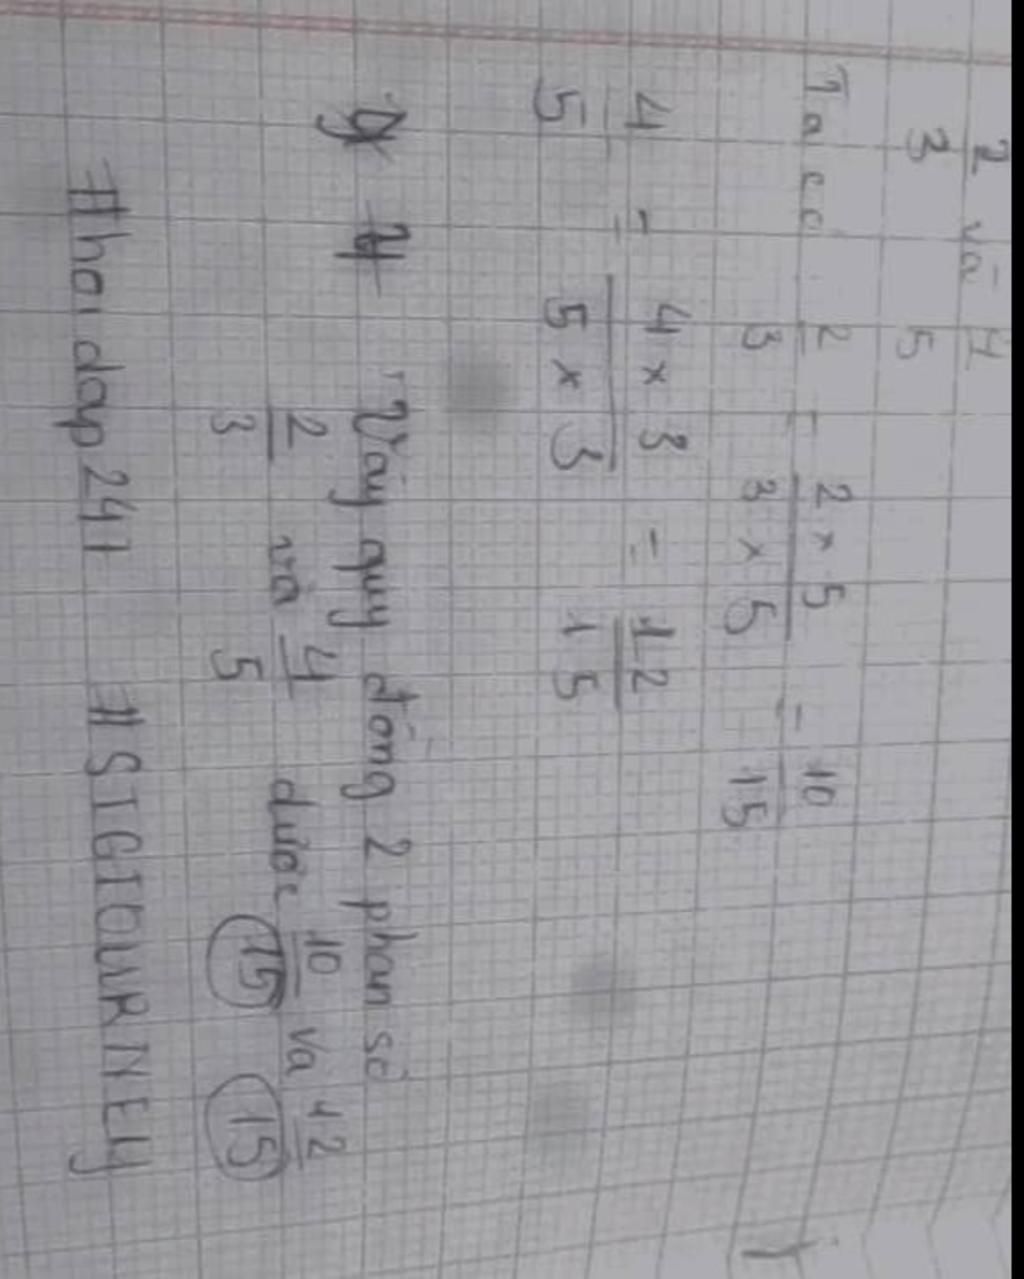 2/3 và 4/5
Ta có 2/3 = 2 x 5 / 3 x 5 = 10/15
4/5 = 4 x 3 / 5 x 3 = 12/15
Vậy quy đồng 2 phân số
2/3 và 4/5 được 10/15 và 12/15
#hoidap241 #SIGIOURNEY